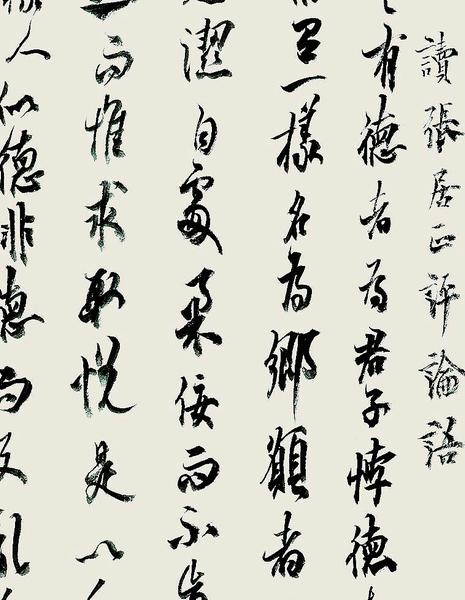 讀張居正評論語
有德者為君子悖德
一樣名為鄉願者
潔自處柔佞而不
而惟求取悅是以
人似德非德而反亂